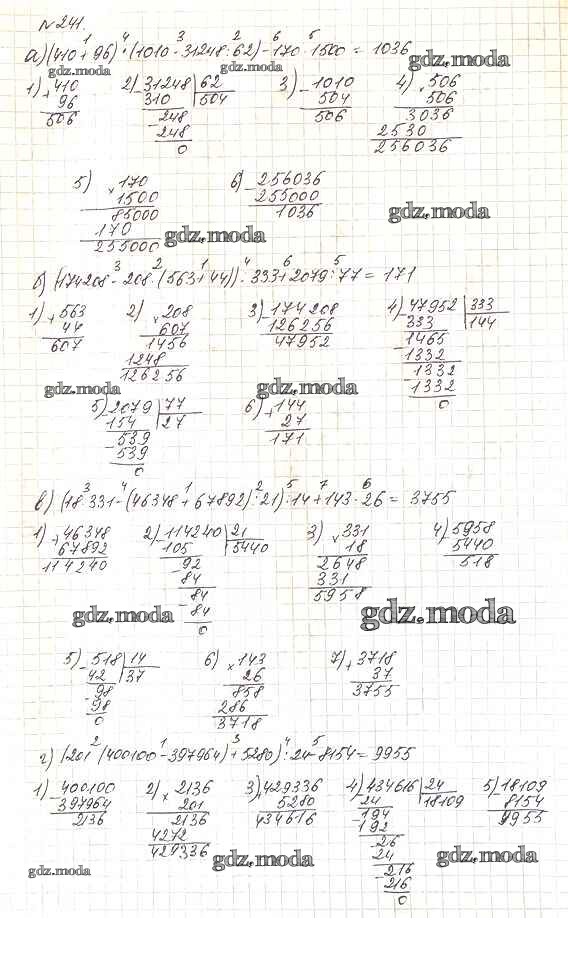 №241.
а) (410 + 96) · (1010 - 31248 : 62) - 170 · 1500 = 1036
1 4 3 2 6 5
gdz.moda gdz.moda gdz.moda
1) + 410 2) - 31248 | 62 3) - 1010 4) × 506
96 310 504 504 506
506 - 248 506 3036
248 2530
0 256036
5) × 170 6) - 256036
1500 255000
85000 1036
170
255000
gdz.moda gdz.moda
б) (174208 - 208 · (563 + 44)) : 333 + 2079 : 77 = 171
3 2 1 4 6 5
1) + 563 2) × 208 3) - 174208 4) - 47952 | 333
44 607 126256 333 144
607 1456 47952 - 1465
1248 1332
126256 - 1332
1332
0
gdz.moda gdz.moda
5) - 2079 | 77 6) + 144
154 27 27
- 539 171
539
0
в) (18 · 331 - (46348 + 67892) : 21) : 14 + 143 · 26 = 3755
3 4 1 2 5 7 6
1) + 46348 2) - 114240 | 21 3) × 331 4) - 5958
67892 105 5440 18 5440
114240 - 92 2648 518
84 331
84 5958
- 84
0
gdz.moda gdz.moda gdz.moda
5) - 518 | 14 6) × 143 7) + 3718
42 37 26 37
- 98 858 3755
98 286
0 3718
г) (201 · (400100 - 397964) + 5280) : 24 - 8154 = 9955
2 1 3 4 5
1) - 400100 2) × 2136 3) + 429336 4) - 434616 | 24 5) - 18109
397964 201 5280 24 18109 8154
2136 2136 434616 - 194 9955
4272 192
429336 - 26
24
- 216
216
0
gdz.moda gdz.moda gdz.moda gdz.moda